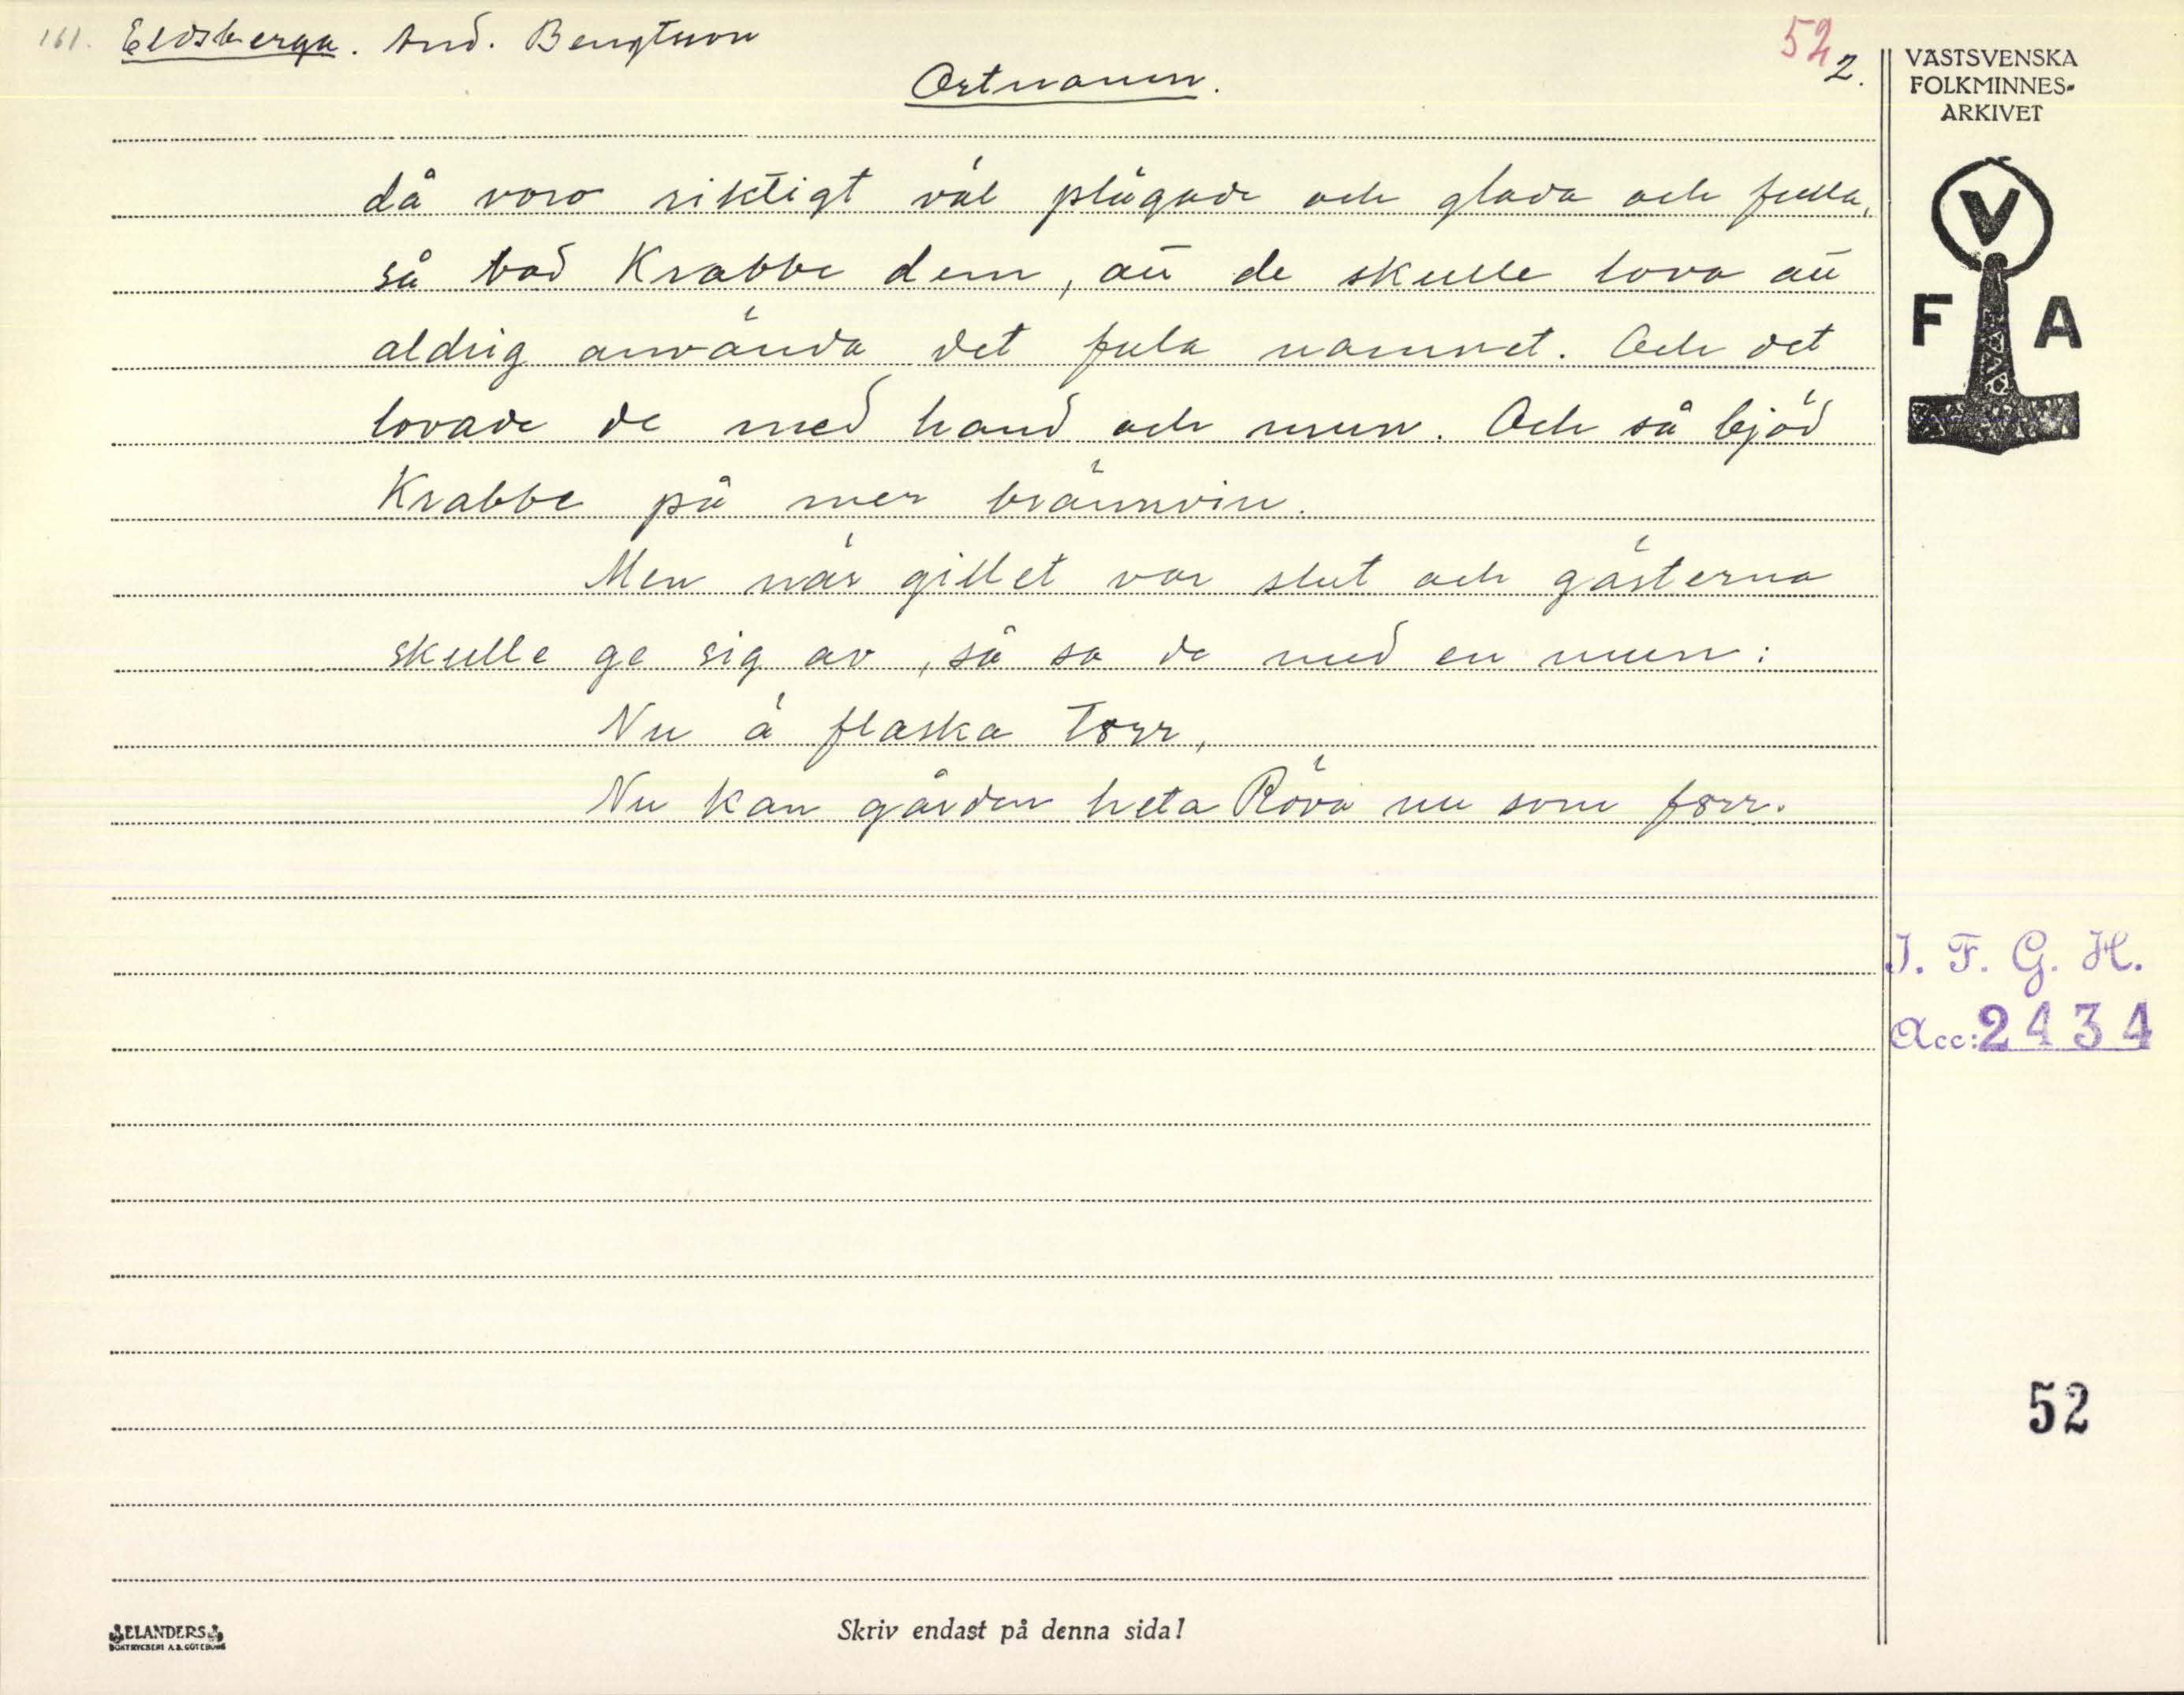 161. Eldsberga. And. Bengtsson
52 2.
Ortnamn.
VÄSTSVENSKA
FOLKMINNES-
ARKIVET
V
F A
då voro riktigt väl plägade och glada och fulla,
så bad Krabbe dem, att de skulle lova att
aldrig använda det fula namnet. Och det
lovade de med hand och mun. Och så bjöd
Krabbe på mer brännvin.
Men när gillet var slut och gästerna
skulle ge sig av, så sa de med en mun:
Nu ä flaska torr,
Nu kan gården heta Röva nu som förr.
I. F. G. H.
Acc: 2434
52
ELANDERS
BOKTRYCKERI A.B. GÖTEBORG
Skriv endast på denna sida!